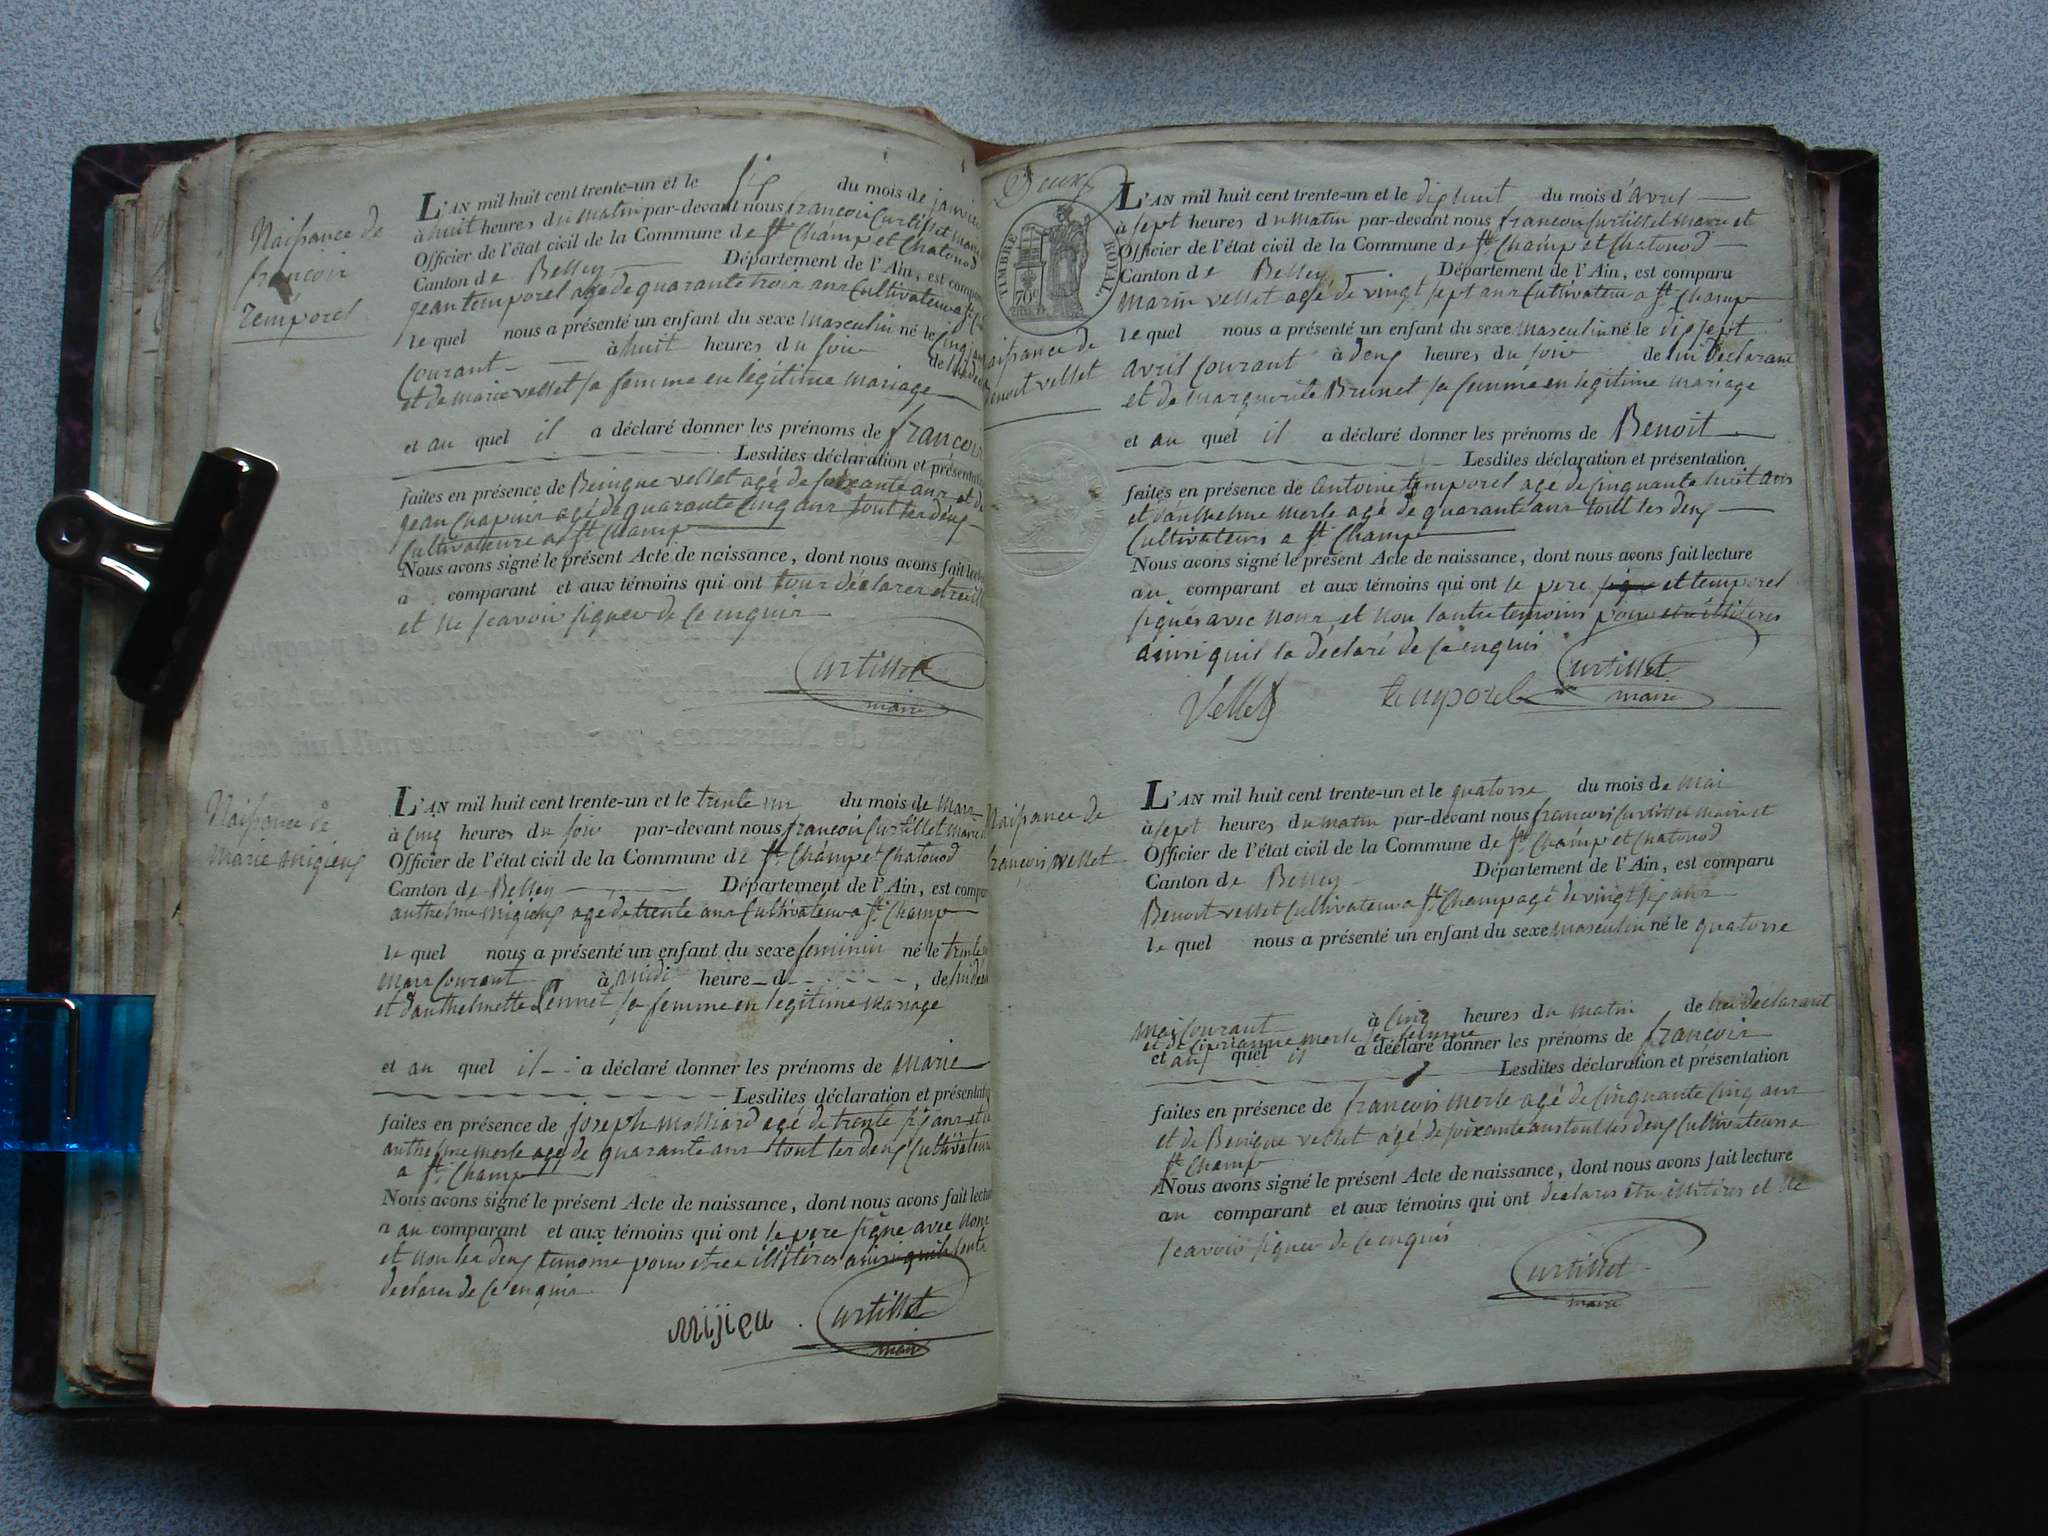 Naissance de
françois
Temporel
L'AN mil huit cent trente-un et le six du mois de janvier
à huit heures du matin par-devant nous françois Curtillet maire
Officier de l'état civil de la Commune de St. Champ et Chatonod
Canton de Belley Département de l'Ain, est comparu
jean temporel agé de quarante trois ans Cultivateur a St.
le quel nous a présenté un enfant du sexe masculin né le cinq
Courant à huit heures du soir de
et de marie vellet sa femme en legitime mariage
et au quel il a déclaré donner les prénoms de françois
Lesdites déclaration et présentation
faites en présence de Benigne vellet agé de soixante ans et de
jean Chapuis agé de quarante Cinq ans tout les deux
Cultivateurs a St. Champ
Nous avons signé le présent Acte de naissance, dont nous avons fait lecture
a comparant et aux témoins qui ont tous déclarer
et ne scavoir signer de ce enquis
Curtillet
maire
Naissance de
marie migieux
L'AN mil huit cent trente-un et le trente un du mois de mars
à Cinq heures du soir par-devant nous françois Curtillet maire
Officier de l'état civil de la Commune de St. Champ et Chatonod
Canton de Belley Département de l'Ain, est comparu
anthelme migieux agé de trente ans Cultivateur a St. Champ
le quel nous a présenté un enfant du sexe feminin né le trente
mars Courant à midi heure d , de lui
et d'anthelmette sa femme en legitime mariage
et au quel il a déclaré donner les prénoms de marie
Lesdites déclaration et présentation
faites en présence de joseph molliard agé de trente six ans et
anthelme merle agé de quarante ans tout les deux Cultivateurs
a St. Champ
Nous avons signé le présent Acte de naissance, dont nous avons fait lecture
a au comparant et aux témoins qui ont le pere signé avec nous
et non les deux temoins pour etre illitéres ainsi quils
declarer de ce enquis
mijieu Curtillet
maire
Deux
TIMBRE ROYAL
70c
Naissance de
Benoit vellet
L'AN mil huit cent trente-un et le dix huit du mois d'avril
à sept heures du matin par-devant nous françois Curtillet maire et
Officier de l'état civil de la Commune de St. Champ et Chatonod
Canton de Belley Département de l'Ain, est comparu
marin vellet agé de vingt sept ans Cultivateur a St. Champ
le quel nous a présenté un enfant du sexe masculin né le dix sept
avril courant à deux heures du soir de lui declarant
et de marguerite Brunet sa femme en legitime mariage
et au quel il a déclaré donner les prénoms de Benoit
Lesdites déclaration et présentation
faites en présence de antoine temporel agé de cinquante huit ans
et d'anthelme merle agé de quarante ans tout les deux
Cultivateurs a St. Champ
Nous avons signé le présent Acte de naissance, dont nous avons fait lecture
au comparant et aux témoins qui ont le pere et temporel
signés avec nous et non l'autre temoins pour etre illitéres
ainsi quil la déclaré de ce enquis
Curtillet
maire
Vellet temporel
Naissance de
françois vellet
L'AN mil huit cent trente-un et le quatorse du mois de mai
à sept heures du matin par-devant nous françois Curtillet maire et
Officier de l'état civil de la Commune de St. Champ et Chatonod
Canton de Belley Département de l'Ain, est comparu
Benoit vellet Cultivateur a St. Champ agé de vingt six ans
le quel nous a présenté un enfant du sexe masculin né le quatorse
mai Courant à cinq heures du matin de lui déclarant
et de merle sa femme
et au quel il a déclaré donner les prénoms de françois
Lesdites déclaration et présentation
faites en présence de françois merle agé de cinquante cinq ans
et de Benigne vellet agé de soixante ans tout les deux Cultivateurs a
St. Champ
Nous avons signé le présent Acte de naissance, dont nous avons fait lecture
au comparant et aux témoins qui ont declarer etre illitéres et ne
scavoir signer de ce enquis
Curtillet
maire